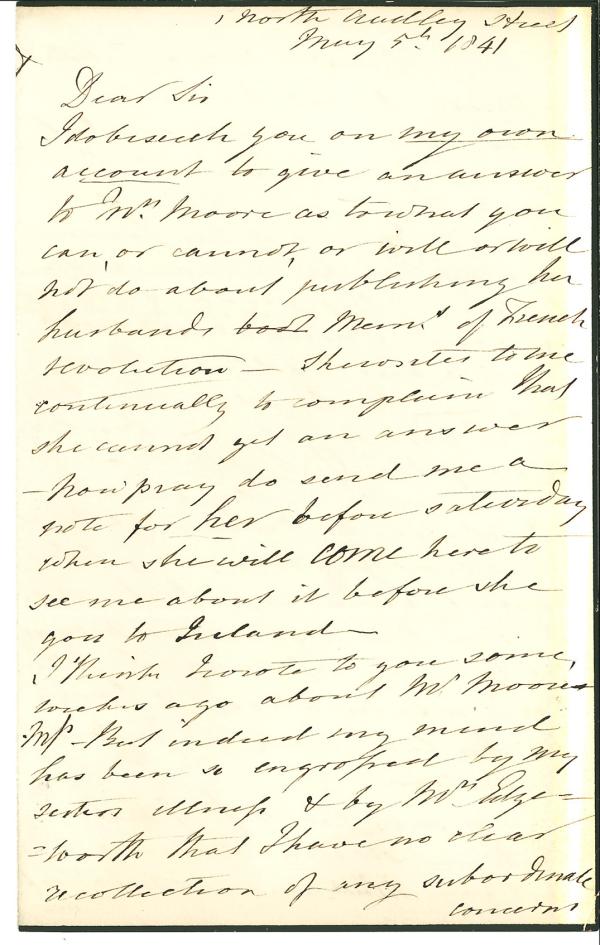 1 North Audley Street
May 5th 1841
Dear Sir
I do beseech you on my own
account to give an answer
to Mrs. Moore as to what you
can, or cannot, or will or will
not do about publishing her
husbands book Memrs of French
revolution — She writes to me
continually to complain that
she cannot get an answer
— Now pray do send me a
note for her before saturday
when she will come here to
see me about it before she
goes to Ireland —
I think I wrote to you some
weeks ago about Mr Moores
MS — But indeed my mind
has been so engrossed by my
sisters illness & by Mrs Edge=
=worth that I have no clear
recollection of any subordinate
concerns